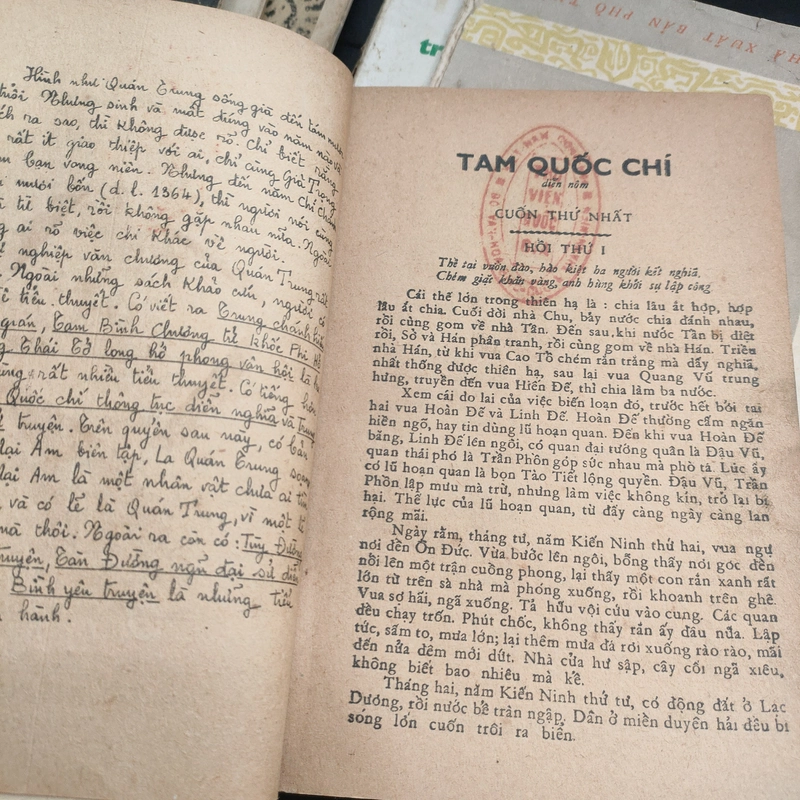 Hình như Quán Trung sống già đến tám mươi
tuổi. Nhưng sinh và mất đúng vào năm nào và
ra sao, thì không được rõ. Chỉ biết rằng
rất ít giao thiệp với ai, chỉ cùng Giả Trọng
bạn vong niên. Nhưng đến năm Chí Chính
mươi bốn (d. l. 1364), thì người nói cùng
từ biệt, rồi không gặp nhau nữa. Ngoài
ai rõ việc chi khác về người.
nghiệp văn chương của Quán Trung rất
Ngoài những sách khảo cứu, người có
tiểu thuyết. Có viết ra Trung chánh hiếu
gián, Tam Bình Chương tử khốc Phi Hổ
Thái Tổ long hổ phong vân hội là
rất nhiều tiểu thuyết. Có tiếng hơn
Quốc chí thông tục diễn nghĩa và Trung
truyện. Trên quyển sau này, có bản
Nại Am biên tập, La Quán Trung soạn
Nại Am là một nhân vật chưa ai
và có lẽ là Quán Trung, vì một
mà thôi. Ngoài ra còn có: Tùy Đường
truyện, Tàn Đường ngũ đại sử diễn
Bình yêu truyện là những tiểu
hành.
TAM QUỐC CHÍ
diễn nôm
CUỐN THỨ NHẤT
HỒI THỨ I
Thề tại vườn đào, hào kiệt ba người kết nghĩa.
Chém giặt khăn vàng, anh hùng khởi sự lập công
Cái thế lớn trong thiên hạ là : chia lâu ắt hợp, hợp
lâu ắt chia. Cuối đời nhà Chu, bảy nước chia đánh nhau,
rồi cùng gom về nhà Tần. Đến sau khi nước Tần bị diệt
rồi, Sở và Hán phân tranh, rồi cùng gom về nhà Hán. Triều
nhà Hán, từ khi vua Cao Tổ chém rắn trắng mà dấy nghĩa,
nhất thống được thiên hạ, sau lại vua Quang Vũ trung
hưng, truyền đến vua Hiến Đế, thì chia làm ba nước.
Xem cái do lai của việc biến loạn đó, trước hết bởi tại
hai vua Hoàn Đế và Linh Đế. Hoàn Đế thường cấm ngăn
hiền ngõ, hay tin dùng lũ hoạn quan. Đến khi vua Hoàn Đế
băng, Linh Đế lên ngôi, có quan đại tướng quân là Đậu Vũ,
quan thái phó là Trần Phồn góp sức nhau mà phò tá. Lúc ấy
có lũ hoạn quan là bọn Tào Tiết lộng quyền. Đậu Vũ, Trần
Phồn lập mưu mà trừ, nhưng làm việc không kín, trở lại bị
hại. Thế lực của lũ hoạn quan, từ đấy càng ngày càng lan
rộng mãi.
Ngày rằm, tháng tư, năm Kiến Ninh thứ hai, vua ngự
nơi đền Ôn Đức. Vừa bước lên ngôi, bỗng thấy nơi góc đền
nổi lên một trận cuồng phong, lại thấy một con rắn xanh rất
lớn từ trên sà nhà mà phóng xuống, rồi khoanh trên ghế.
Vua sợ hãi, ngã xuống. Tả hữu vội cứu vào cung. Các quan
đều chạy trốn. Phút chốc, không thấy rắn ấy đâu nữa. Lập
tức, sấm to, mưa lớn; lại thêm mưa đá rơi xuống rào rào, mãi
đến nửa đêm mới dứt. Nhà cửa hư sập, cây cối ngã xiêu,
không biết bao nhiêu mà kể.
Tháng hai, năm Kiến Ninh thứ tư, có động đất ở Lạc
Dương, rồi nước bể tràn ngập. Dân ở miền duyện hải đều bị
sóng lớn cuốn trôi ra biển.